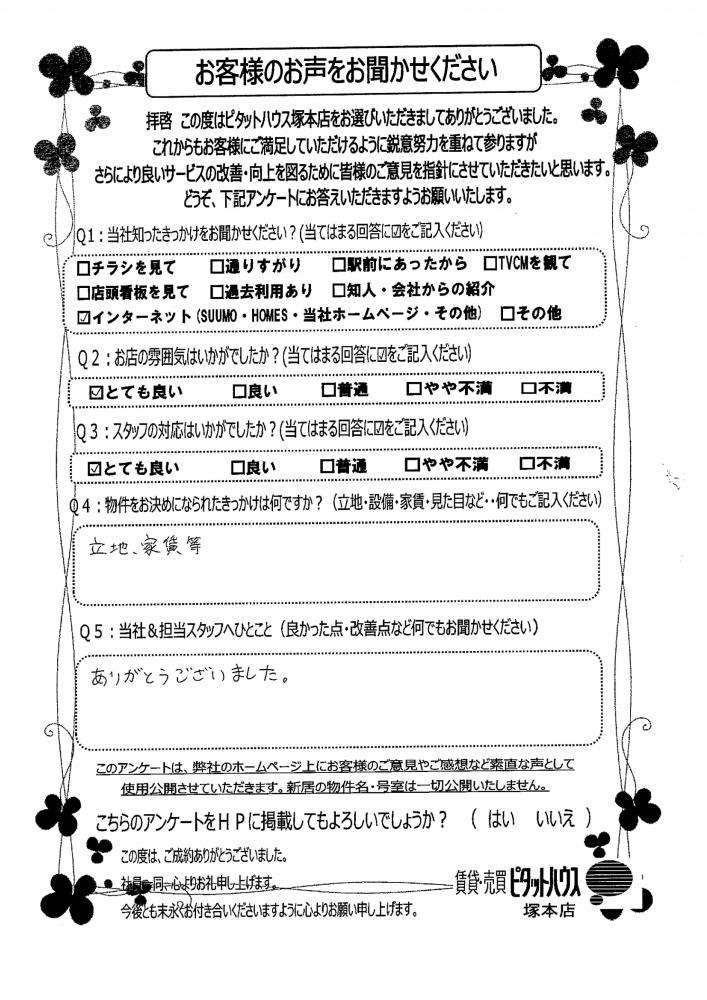 お客様のお声をお聞かせください
拝啓 この度はピタットハウス塚本店をお選びいただきましてありがとうございました。
これからもお客様にご満足していただけるように鋭意努力を重ねて参りますが
さらにより良いサービスの改善・向上を図るために皆様のご意見を指針にさせていただきたいと思います。
どうぞ、下記アンケートにお答えいただきますようお願いいたします。
Q1：当社知ったきっかけをお聞かせください？(当てはまる回答に☑をご記入ください)
□チラシを見て □通りすがり □駅前にあったから □TVCMを観て
□店頭看板を見て □過去利用あり □知人・会社からの紹介
☑インターネット(SUUMO・HOMES・当社ホームページ・その他) □その他
Q2：お店の雰囲気はいかがでしたか？(当てはまる回答に☑をご記入ください)
☑とても良い □良い □普通 □やや不満 □不満
Q3：スタッフの対応はいかがでしたか？(当てはまる回答に☑をご記入ください)
☑とても良い □良い □普通 □やや不満 □不満
Q4：物件をお決めになられたきっかけは何ですか？（立地・設備・家賃・見た目など・・何でもご記入ください）
立地、家賃等
Q5：当社＆担当スタッフへひとこと（良かった点・改善点など何でもお聞かせください）
ありがとうございました。
このアンケートは、弊社のホームページ上にお客様のご意見やご感想など素直な声として
使用公開させていただきます。新居の物件名・号室は一切公開いたしません。
こちらのアンケートをＨＰに掲載してもよろしいでしょうか？ （ はい いいえ ）
この度は、ご成約ありがとうございました。
社員一同、心よりお礼申し上げます。
今後とも末永くお付き合いくださいますように心よりお願い申し上げます。
賃貸・売買 ピタットハウス
塚本店